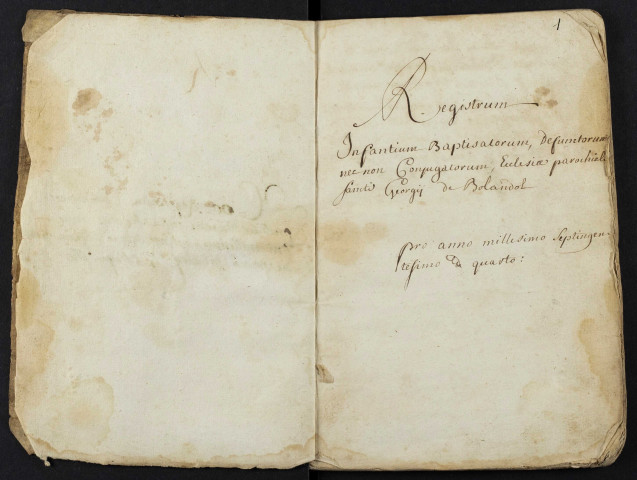 1
Registrum
Infantium Baptisatorum, Defuntorum
nec non Conjugatorum, Eclesiæ parochialis
sainti Georgij de Bolandol
pro anno millesimo septingen-
tesimo & quarto: